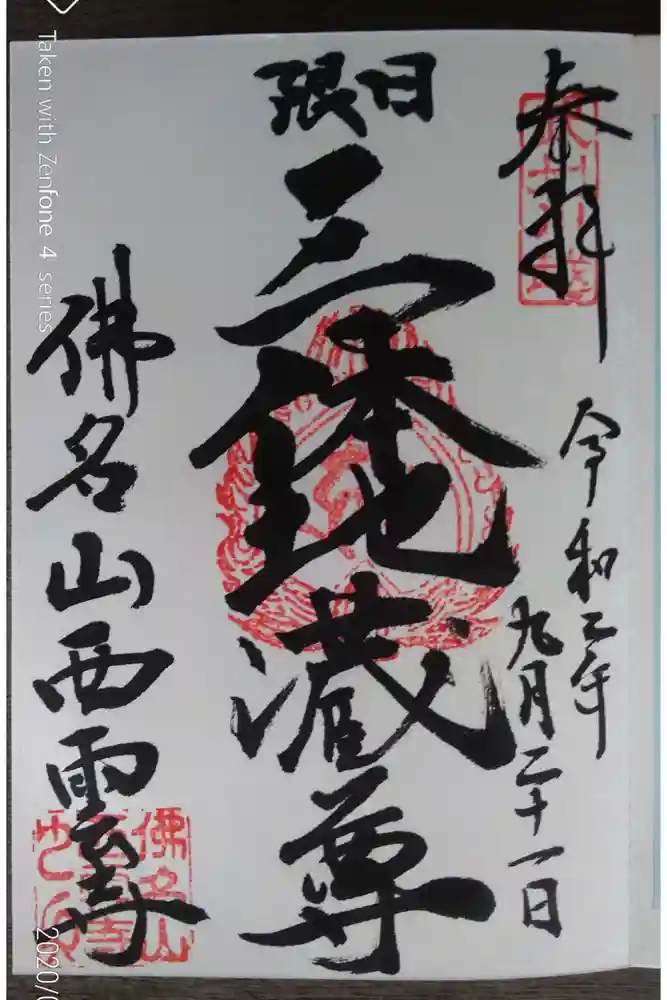 奉拝
令和二年
九月二十一日
日限
三体地蔵尊
佛名山西雲寺
佛名山
西雲寺
Taken with Zenfone 4 series
2020/0